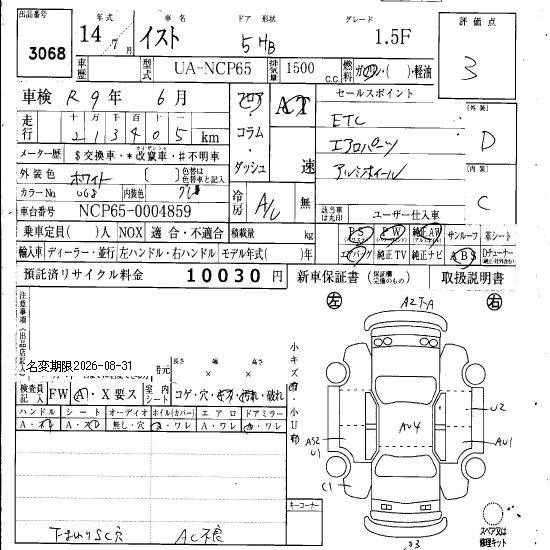 出品番号 3068
年式 14年 7月
車名 イスト
ドア 形状 5HB
グレード 1.5F
評価点 3
車歴
型式 UA-NCP65
排気量 1500 C.C.
燃料 ガソリン・( )・軽油
車検 R9年 6月
フロア コラム・ダッシュ
AT 速
セールスポイント
ETC
エアロパーツ
アルミホイール
外装 D
内装 C
走行 十万千百十一
213405 km
メーター歴 $交換車・*改竄車・#不明車
外装色 ホワイト
色替は色替車と記入
カラーNo 068 内装色
冷房 A/C 無
該当車は丸印 ユーザー仕入車
車台番号 NCP65-0004859
乗車定員( )人 NOX 適合・不適合 積載量 kg
PS PW 純正AW サンルーフ 革シート
輸入車 ディーラー・並行 左ハンドル・右ハンドル モデル年式( )年
エアバッグ 純正TV 純正ナビ ABS Dチューナー
預託済リサイクル料金 10030円
新車保証書 (保証欄完備のもの) 取扱説明書
注意事項(出品店記入)
左 A2T-A 右
名変期限2026-08-31
諸元 長さ 幅 高さ
× ×
検査員記入 FW A・X要ス 室内シート コゲ・穴・キズ・汚れ・破れ
ハンドル シート オーディオ ホイル(カバー) エアロ ドアミラー
A・スレ A・スレ 無し・穴 キ・ワレ A・ワレ キ・ワレ
小キズ有・小U有
AU4
U2
AU1
AS2
U1
C1
下まわりSC穴 AC不良
キーコーナー
スペア又は修理キット